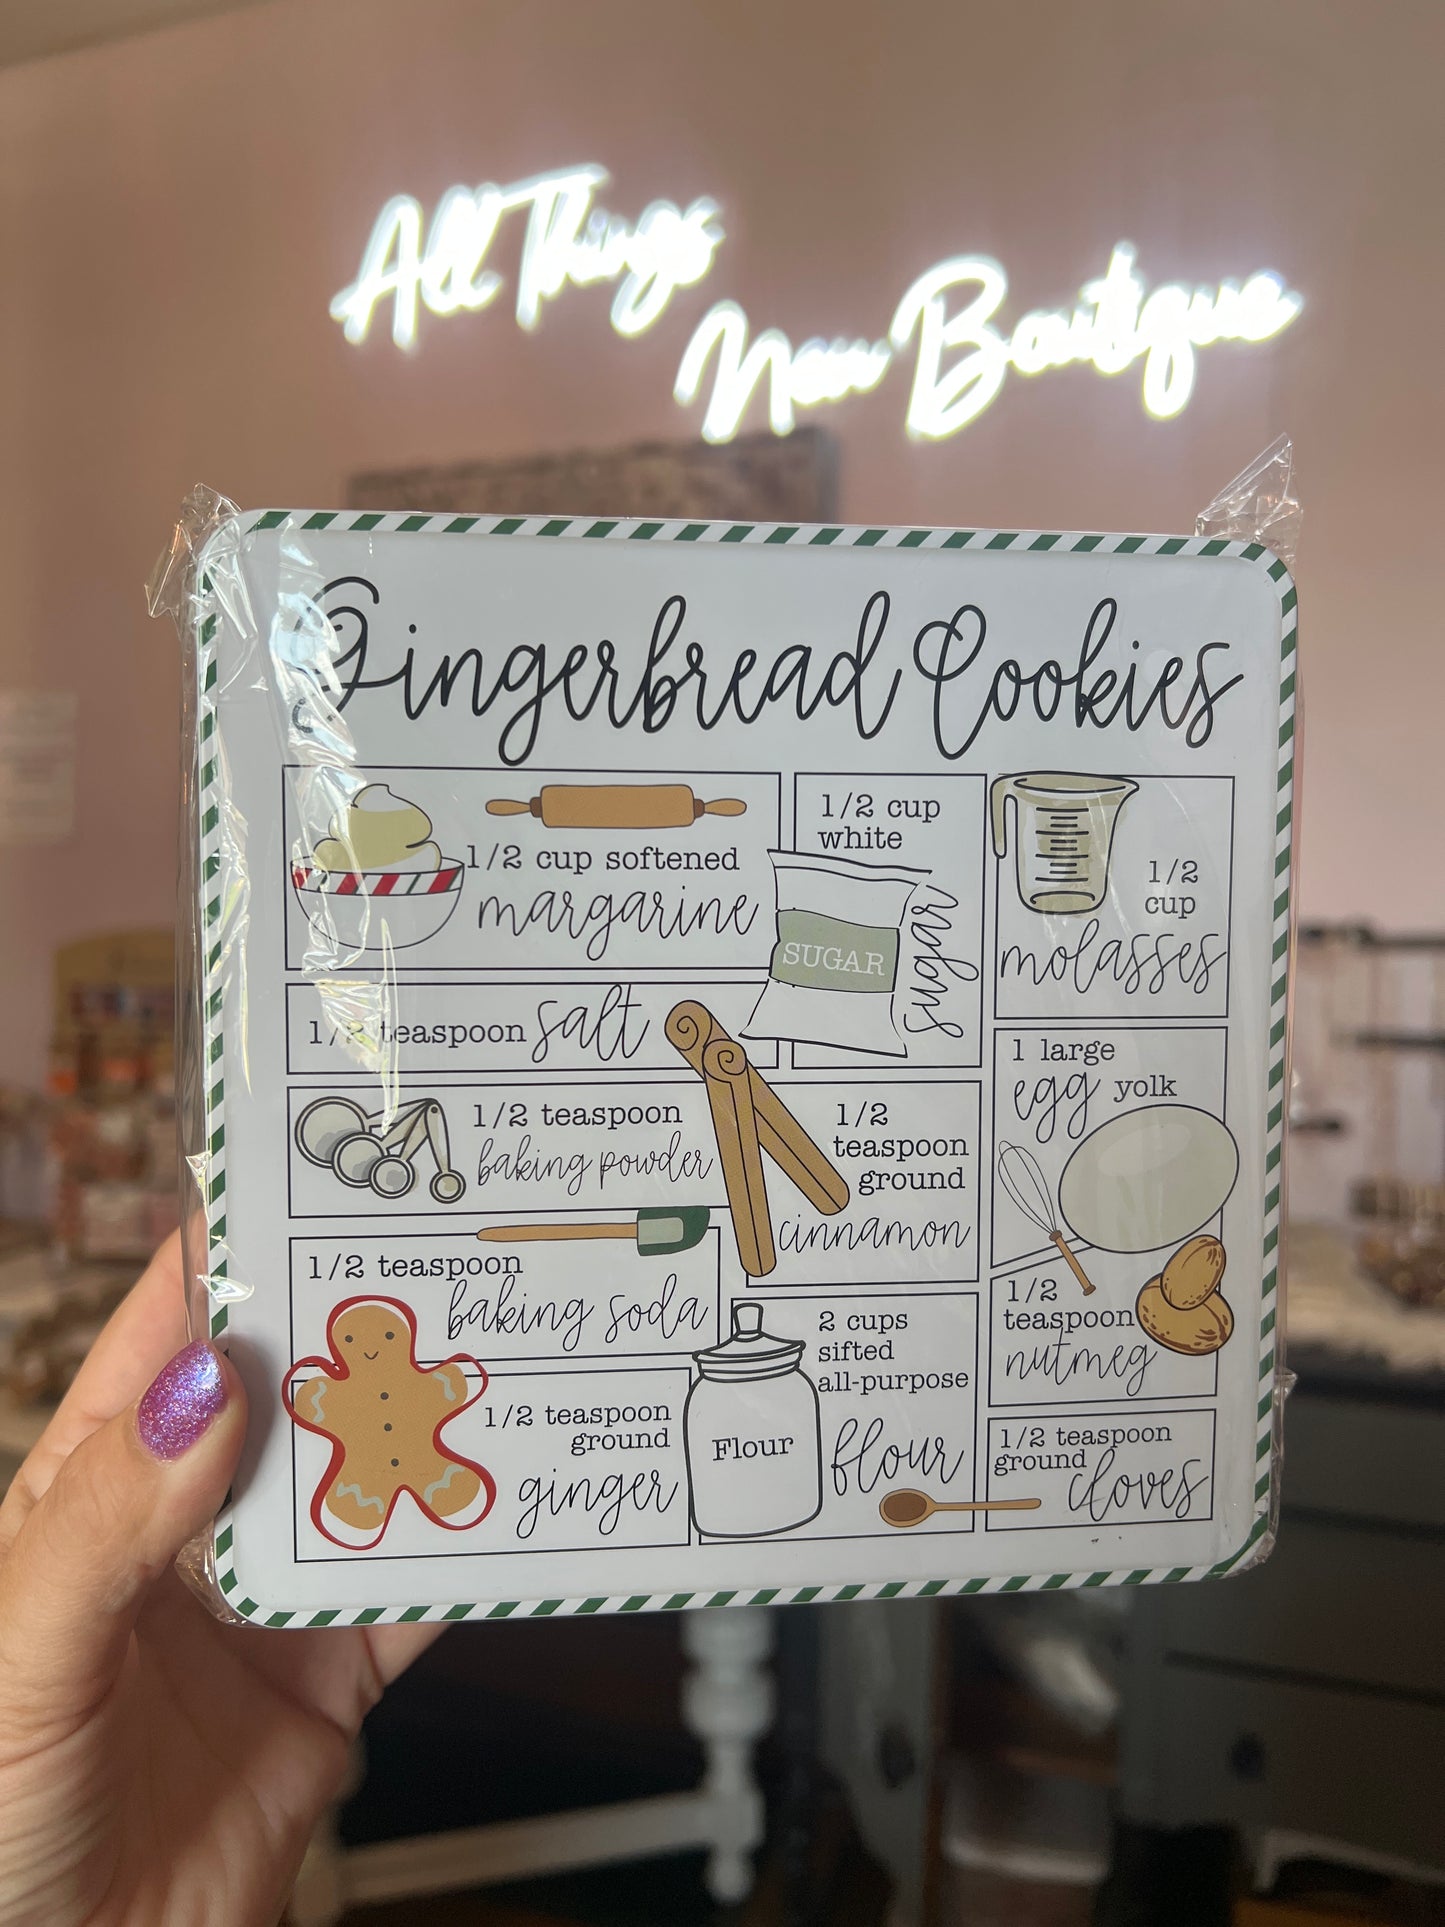 All Things
New Boutique
Gingerbread Cookies
1/2 cup softened
margarine
1/2 cup
white
sugar
SUGAR
1/2
cup
molasses
1/2 teaspoon salt
1 large
egg yolk
1/2 teaspoon
baking powder
1/2
teaspoon
ground
cinnamon
1/2 teaspoon
baking soda
1/2
teaspoon
nutmeg
1/2 teaspoon
ground
ginger
2 cups
sifted
all-purpose
flour
Flour
1/2 teaspoon
ground cloves